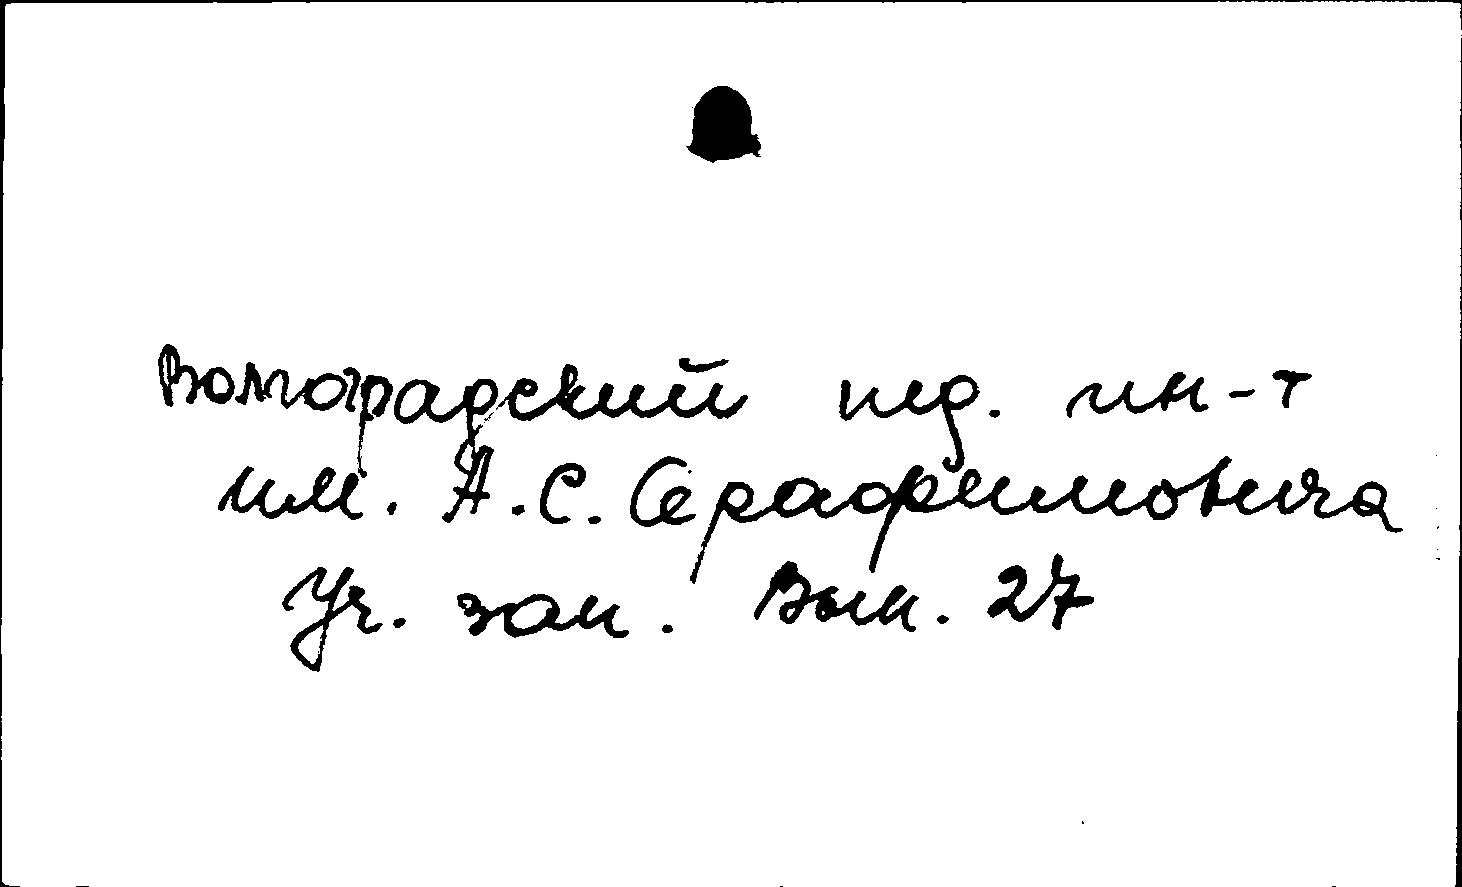 Волгоградский пед. ин-т
им. А.С. Серафимовича
Уч. зап. Вып. 27